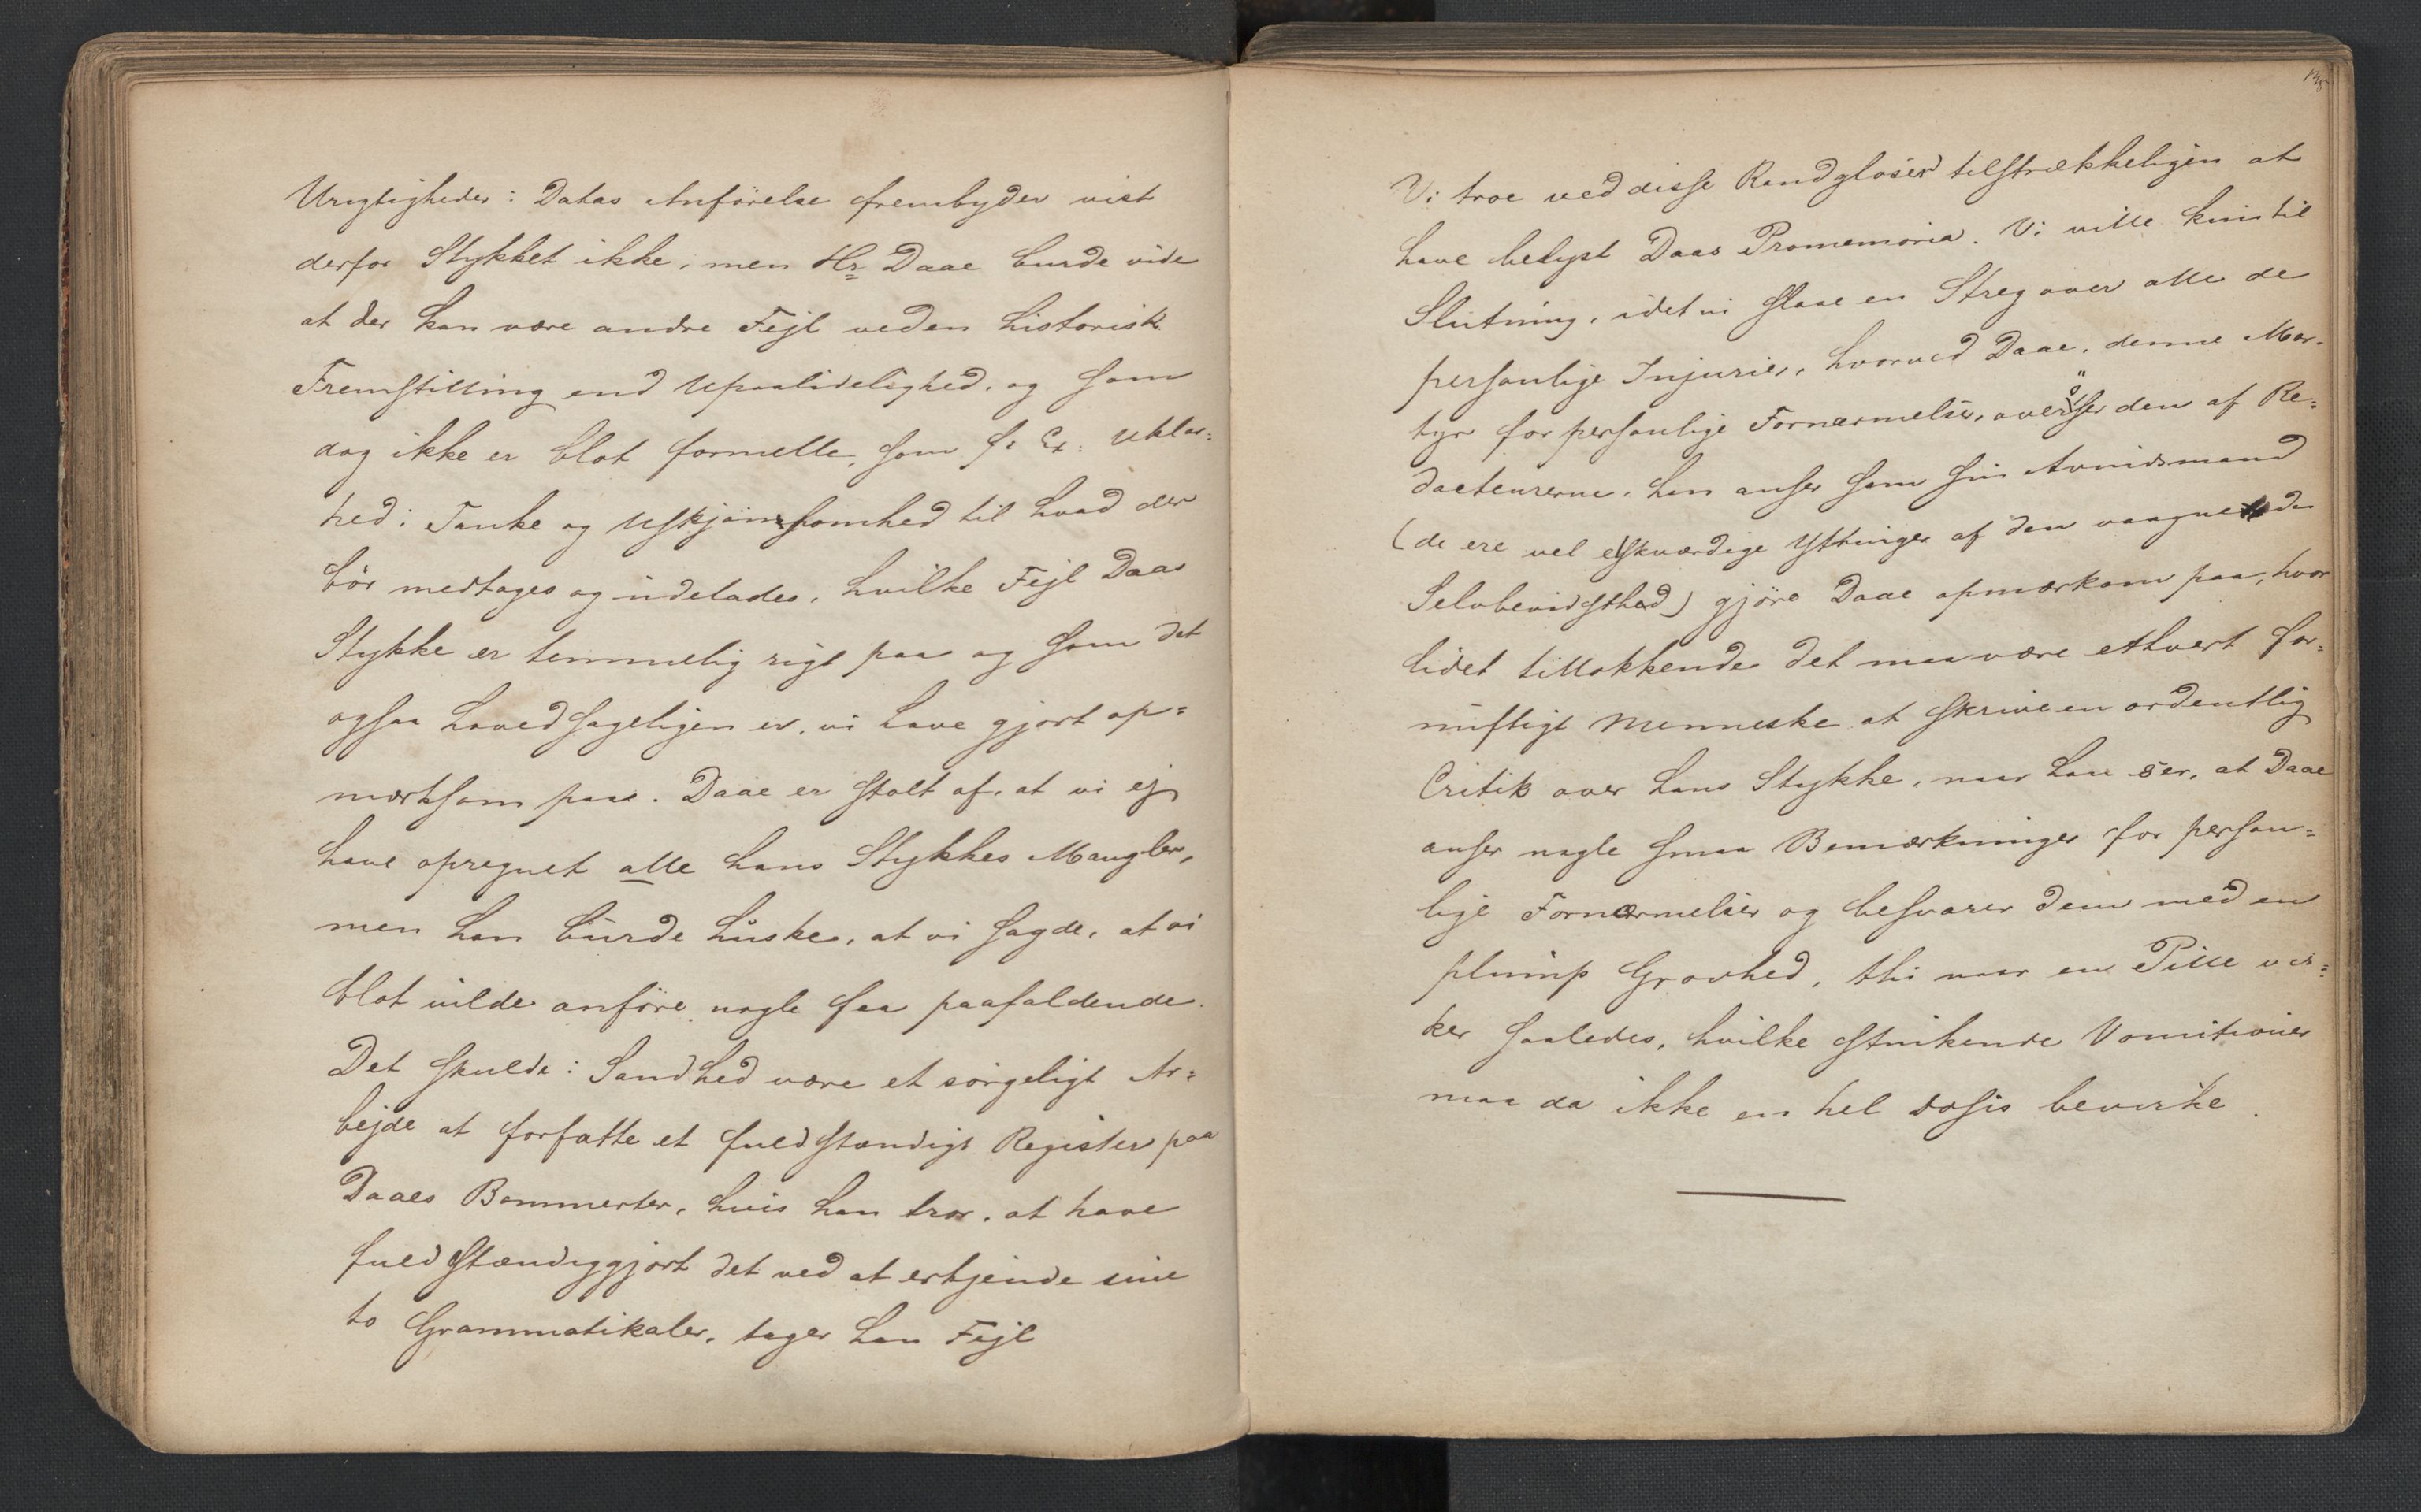 Urigtigheder i Datas Anförelse frembyder vist
derfor Stykket ikke, men Hr Daae burde vide
at der kan være andre Fejl ved en historisk
Fremstilling end Upaalidelighed, og som
dog ikke er blot formelle, som f: Ex: Uklar=
hed i Tanke og Uskjönsomhed til hvad der
bör medtages og udelades, hvilke Fejl Daas
Stykke er temmelig rigt paa og som det
ogsaa hovedsageligen er, vi have gjort op=
mærksom paa. Daae er stolt af, at vi ej
have opregnet alle hans Stykkes Mangler,
men han burde huske, at vi sagde, at vi
blot vilde anföre nogle faa paafaldende.
Det skulde i Sandhed være et sörgeligt Ar=
bejde at forfatte et fuldstændigt Register paa
Daaes Bommerter, hvis han tror, at have
fuldstændiggjort det ved at erkjende sine
to Grammatikaler, tager han Fejl
138
Vi troe ved disse Randgloser tilstrækkeligen at
have belyst Daas Promemoria. Vi ville kun til
Slutning, idet vi slaae en Streg over alle de
personlige Injurier, hvorved Daae, denne Mar=
tyr for personlige Fornærmelser, overöser den af Re=
dacteurerne, han anser som sin Avindsmand
(de ere vel elskværdige Yttringer af den vaagnede
Selvbevidsthed) gjöre Daae opmærksom paa, hvor
lidet tillokkende det maa være ethvert for=
nuftigt Menneske at skrive en ordentlig
Critik over hans Stykke, naar han ser, at Daae
anser nogle smaa Bemærkninger for person=
lige Fornærmelser og besvarer dem med en
plump Grovhed, thi naar en Pille vir=
ker saaledes, hvilke stinkende Vomitioner
maa da ikke en hel Dosis bevirke.